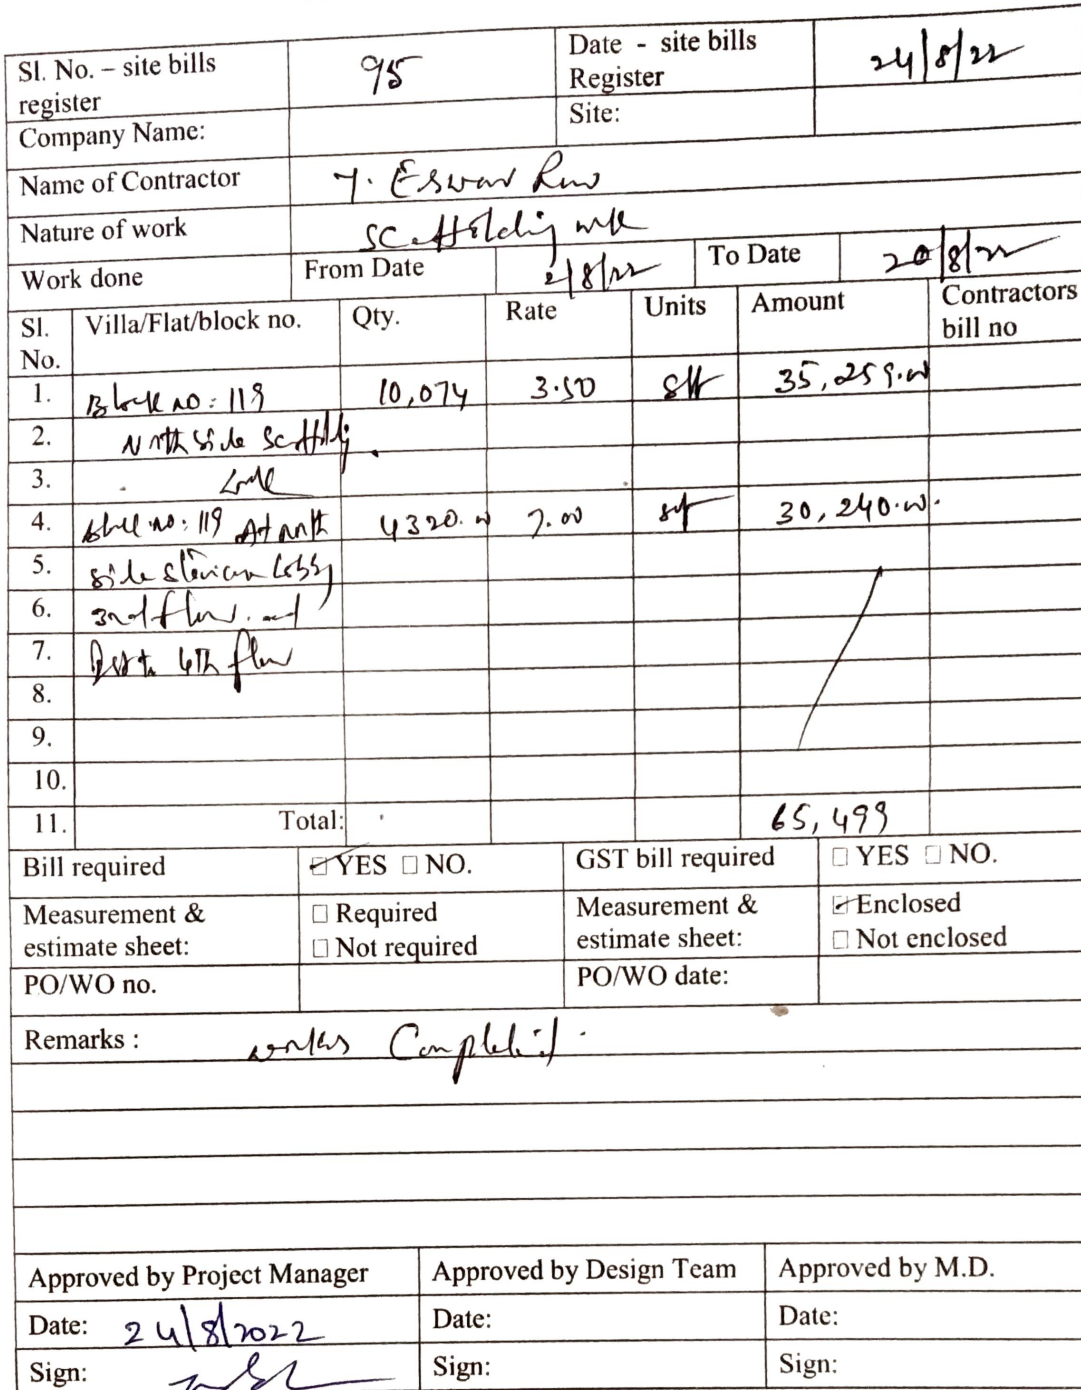 Sl. No. – site bills register 95 Date - site bills Register 24/8/22
Company Name: Site:
Name of Contractor Y. Eswar Rao
Nature of work Scaffolding work
Work done From Date 2/8/22 To Date 20/8/22
Sl. No. Villa/Flat/block no. Qty. Rate Units Amount Contractors bill no
1. Block no: 119 10,074 3.50 sft 35,259.00
2. North side Scaffolding
3.
4. Block no: 119 At north 4320.00 7.00 sft 30,240.00
5. side Lobby
6. floor and
7. 4th floor
8.
9.
10.
11. Total: 65,499
Bill required ☑ YES ☐ NO. GST bill required ☐ YES ☐ NO.
Measurement & estimate sheet: ☐ Required ☐ Not required Measurement & estimate sheet: ☑ Enclosed ☐ Not enclosed
PO/WO no. PO/WO date:
Remarks : works Completed.
Approved by Project Manager Approved by Design Team Approved by M.D.
Date: 24/8/2022 Date: Date:
Sign: Sign: Sign: